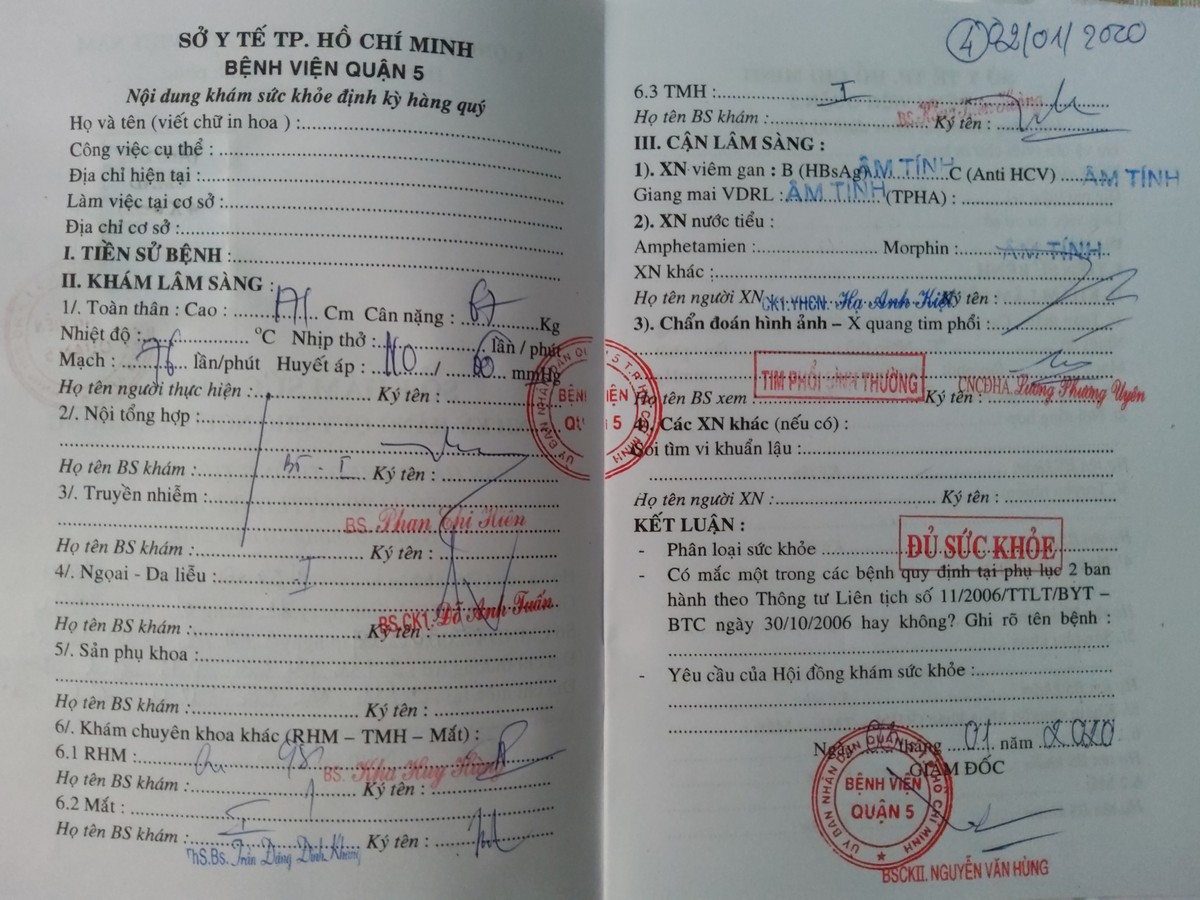 SỞ Y TẾ TP. HỒ CHÍ MINH
BỆNH VIỆN QUẬN 5
Nội dung khám sức khỏe định kỳ hàng quý
Họ và tên (viết chữ in hoa ) :
Công việc cụ thể :
Địa chỉ hiện tại :
Làm việc tại cơ sở :
Địa chỉ cơ sở :
I. TIỀN SỬ BỆNH :
II. KHÁM LÂM SÀNG :
1/. Toàn thân : Cao : 171 Cm Cân nặng : Kg
Nhiệt độ : °C Nhịp thở : lần / phút
Mạch : 76 lần/phút Huyết áp : 110 / mmHg
Họ tên người thực hiện : Ký tên :
2/. Nội tổng hợp :
Họ tên BS khám : BT - I Ký tên :
3/. Truyền nhiễm :
BS. Phan Thị Hiên
Họ tên BS khám : Ký tên :
4/. Ngoại - Da liễu : I
BS.CK1. Đỗ Anh Tuấn
Họ tên BS khám : Ký tên :
5/. Sản phụ khoa :
Họ tên BS khám : Ký tên :
6/. Khám chuyên khoa khác (RHM – TMH – Mắt) :
6.1 RHM :
BS. Khú Huy
Họ tên BS khám : Ký tên :
6.2 Mắt : I
Họ tên BS khám : Ký tên :
ThS.Bs. Trần Đình
4 02/01/2020
6.3 TMH : I
BS.
Họ tên BS khám : Ký tên :
III. CẬN LÂM SÀNG :
1). XN viêm gan : B (HBsAg) ÂM TÍNH C (Anti HCV) ÂM TÍNH
Giang mai VDRL : ÂM TÍNH (TPHA) :
2). XN nước tiểu :
Amphetamien : Morphin : ÂM TÍNH
XN khác :
Họ tên người XN CK1.YHCN. Hạ Anh Kiệt Ký tên :
3). Chẩn đoán hình ảnh – X quang tim phổi :
TIM PHỔI BÌNH THƯỜNG
CNCĐHA. Lương Phương Uyên
Họ tên BS xem : Ký tên :
4). Các XN khác (nếu có) :
Soi tìm vi khuẩn lậu :
Họ tên người XN : Ký tên :
KẾT LUẬN :
- Phân loại sức khỏe ĐỦ SỨC KHỎE
- Có mắc một trong các bệnh quy định tại phụ lục 2 ban
hành theo Thông tư Liên tịch số 11/2006/TTLT/BYT –
BTC ngày 30/10/2006 hay không? Ghi rõ tên bệnh :
- Yêu cầu của Hội đồng khám sức khỏe :
Ngày tháng 01 năm 2020
GIÁM ĐỐC
ỦY BAN NHÂN DÂN QUẬN 5 T.P HỒ CHÍ MINH
BỆNH VIỆN
QUẬN 5
ỦY BAN NHÂN DÂN QUẬN 5 T.P HỒ CHÍ MINH
BỆNH VIỆN
QUẬN 5
BSCKII. NGUYỄN VĂN HÙNG